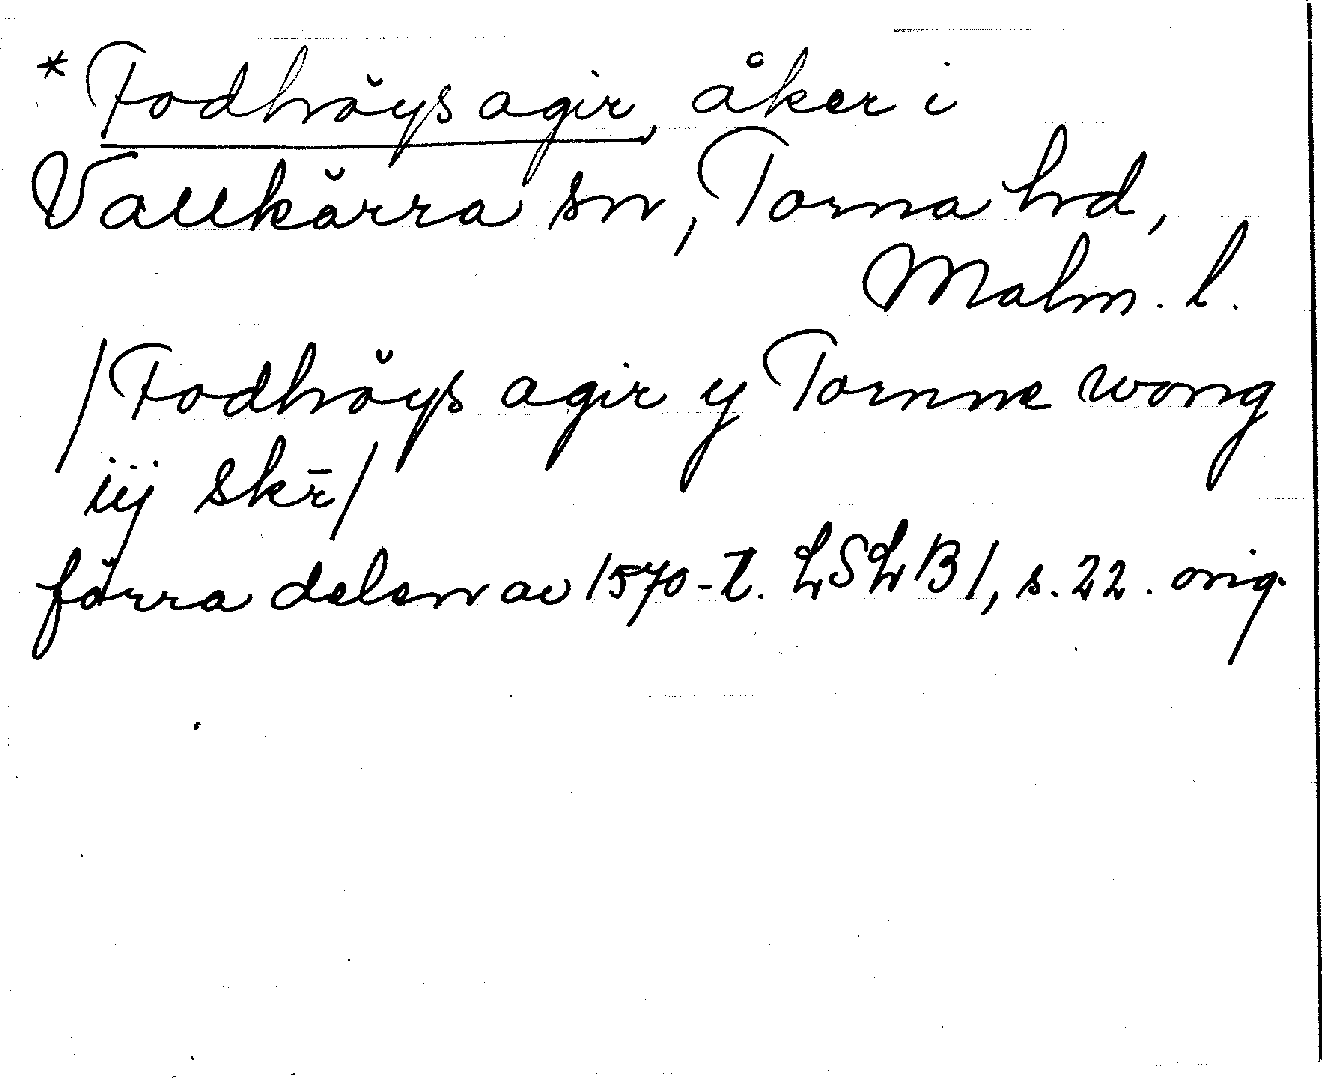 *Fodhöys agir, åker i
Vallkärra sn, Torna hd,
Malm. l.
/Fodhöys agir y Tornne wong
iij skr̄/
förra delen av 1570-t. LSLB1, s. 22. orig.